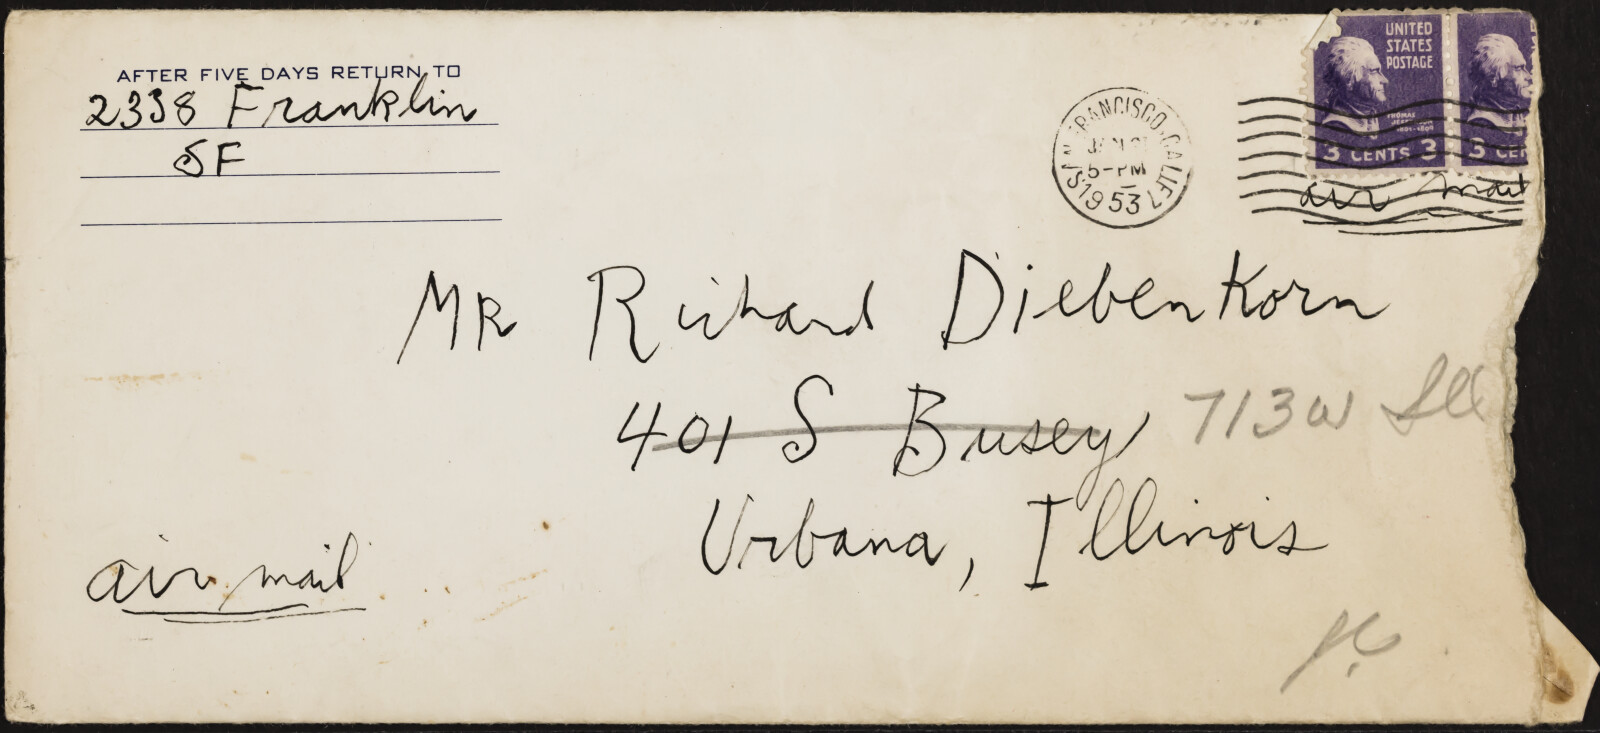 AFTER FIVE DAYS RETURN TO
2338 Franklin
SF
SAN FRANCISCO, CALIF.
5-PM
1953
UNITED
STATES
POSTAGE
THOMAS
3 CENTS 3
3 CEN
air mail
MR Richard Diebenkorn
401 S Busey 713 W Ill
Urbana, Illinois
air mail